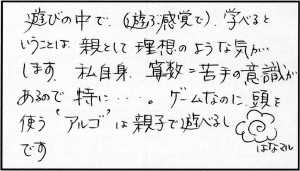 遊びの中で、(遊ぶ感覚で)、学べると
いうことは、親として理想のような気が…
します。私自身、算数＝苦手の意識が
あるので特に・・・。ゲームなのに、頭を
使う“アルゴ”は親子で遊べるし
はなマル
です